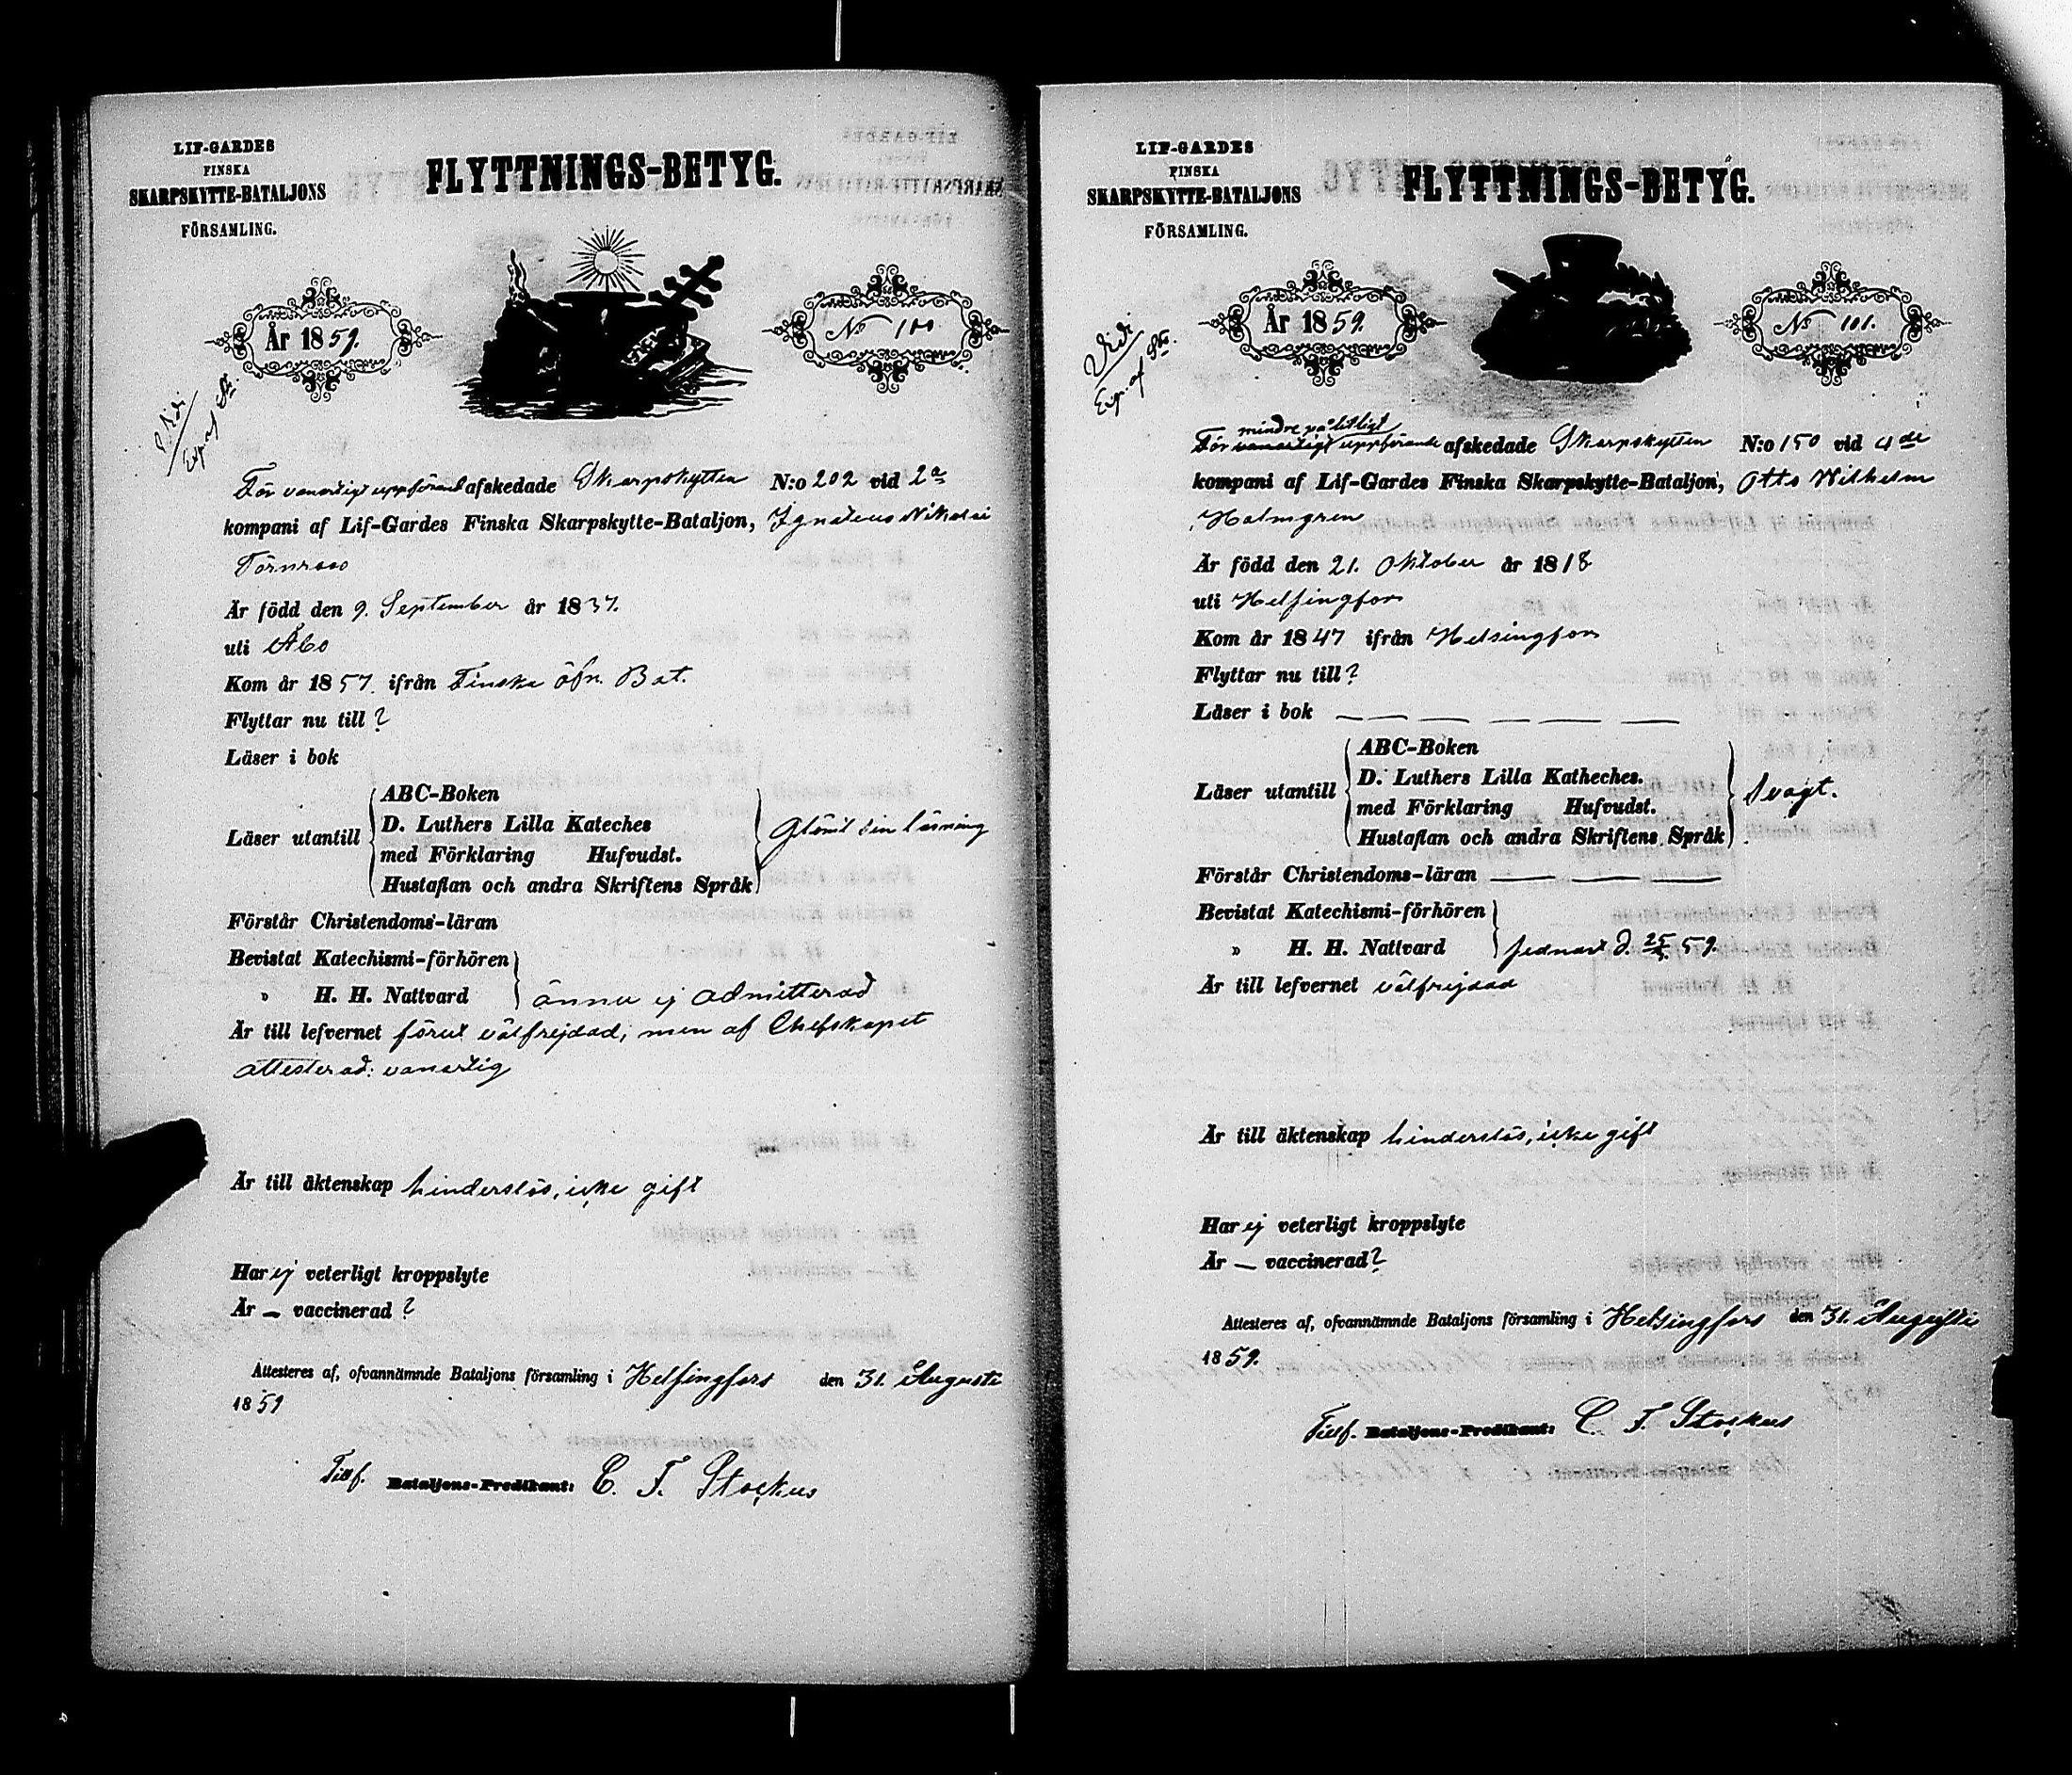 LIF-GARDES
FINSKA
SKARPSKYTTE-BATALJONS
FÖRSAMLING.
FLYTTNINGS-BETYG.
År 1859.
No 100
Vidi
Exp. af St.
För vanartigt uppförand afskedade Skarpskytten N:o 202 vid 2a
kompani af Lif-Gardes Finska Skarpskytte-Bataljon, Ignateus Nikolai
Törnroos
Är född den 9. September år 1837.
uti Åbo
Kom år 1857. ifrån Finska öfn. Bat.
Flyttar nu till ?
Läser i bok
Läser utantill
ABC-Boken
D. Luthers Lilla Kateches
med Förklaring Hufvudst.
Hustaflan och andra Skriftens Språk
Glömt sin läsning
Förstår Christendoms-läran
Bevistat Katechismi-förhören
" H. H. Nattvard ännu ej admitterad
Är till lefvernet förut välfrejdad, men af Chefskapet
attesterad: vanartig
Är till äktenskap hinderslös, icke gift
Har ej veterligt kroppslyte
Är — vaccinerad ?
Attesteres af, ofvannämnde Bataljons församling i Helsingfors den 31. Augusti
1859
Tillf. Bataljons-Predikant: C. F. Stockus
LIF-GARDES
FINSKA
SKARPSKYTTE-BATALJONS
FÖRSAMLING.
FLYTTNINGS-BETYG.
År 1859.
No 101.
Vidi
Exp. af St.
mindre pålitligt
För vanartigt uppförande afskedade Skarpskytten N:o 150 vid 4de
kompani af Lif-Gardes Finska Skarpskytte-Bataljon, Otto Wilhelm
Holmgren
Är född den 21. Oktober år 1818
uti Helsingfors
Kom år 1847 ifrån Helsingfors
Flyttar nu till ?
Läser i bok — — — — — —
Läser utantill
ABC-Boken
D. Luthers Lilla Katheches.
med Förklaring Hufvudst.
Hustaflan och andra Skriftens Språk
Svagt.
Förstår Christendoms-läran — — —
Bevistat Katechismi-förhören
" H. H. Nattvard sednast d. 59.
Är till lefvernet välfrejdad
Är till äktenskap hinderslös, icke gift
Har ej veterligt kroppslyte
Är — vaccinerad ?
Attesteres af, ofvannämnde Bataljons församling i Helsingfors den 31. Augusti
1859.
Tillf. Bataljons-Predikant: C. F. Stockus